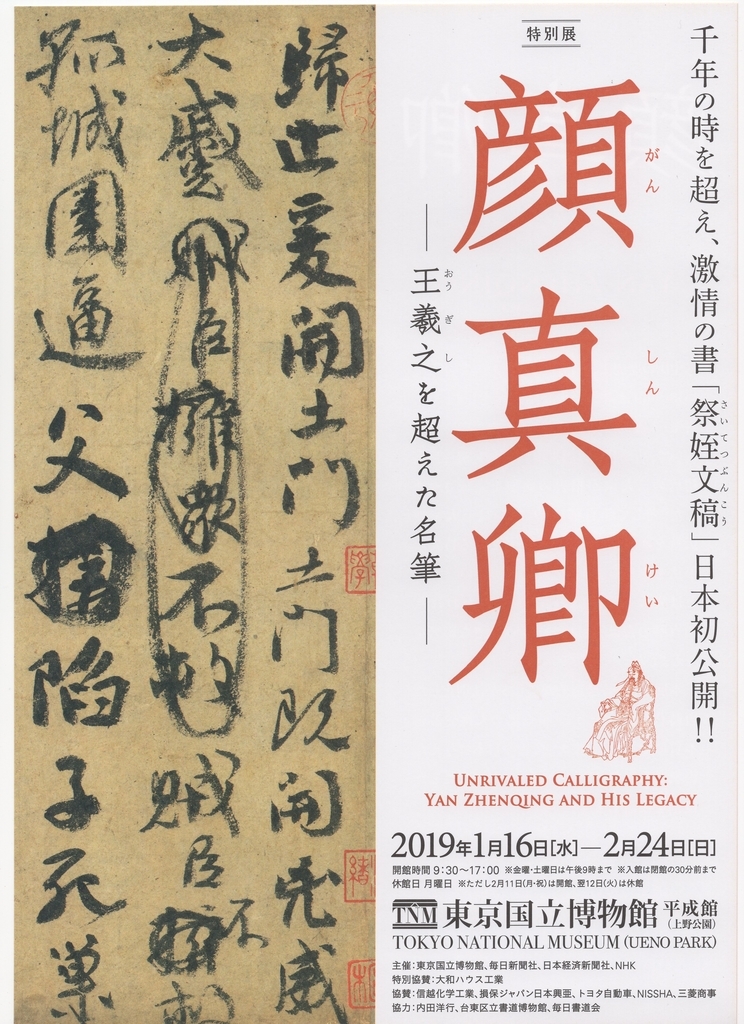 特別展
千年の時を超え、激情の書「祭姪文稿」日本初公開!!
さいてつぶんこう
顔真卿
がん しん けい
―王羲之を超えた名筆―
おう ぎ し
UNRIVALED CALLIGRAPHY:
YAN ZHENQING AND HIS LEGACY
2019年1月16日[水]―2月24日[日]
開館時間 9:30〜17:00 ※金曜・土曜日は午後9時まで ※入館は閉館の30分前まで
休館日 月曜日 ※ただし2月11日(月・祝)は開館、翌12日(火)は休館
TNM 東京国立博物館 平成館
(上野公園)
TOKYO NATIONAL MUSEUM (UENO PARK)
主催:東京国立博物館、毎日新聞社、日本経済新聞社、NHK
特別協賛:大和ハウス工業
協賛:信越化学工業、損保ジャパン日本興亜、トヨタ自動車、NISSHA、三菱商事
協力:内田洋行、台東区立書道博物館、毎日書道会
歸止爰開土門土門既開兇威
大蹙臣擁眾不救賊臣不救
孤城圍逼父陷子死巢